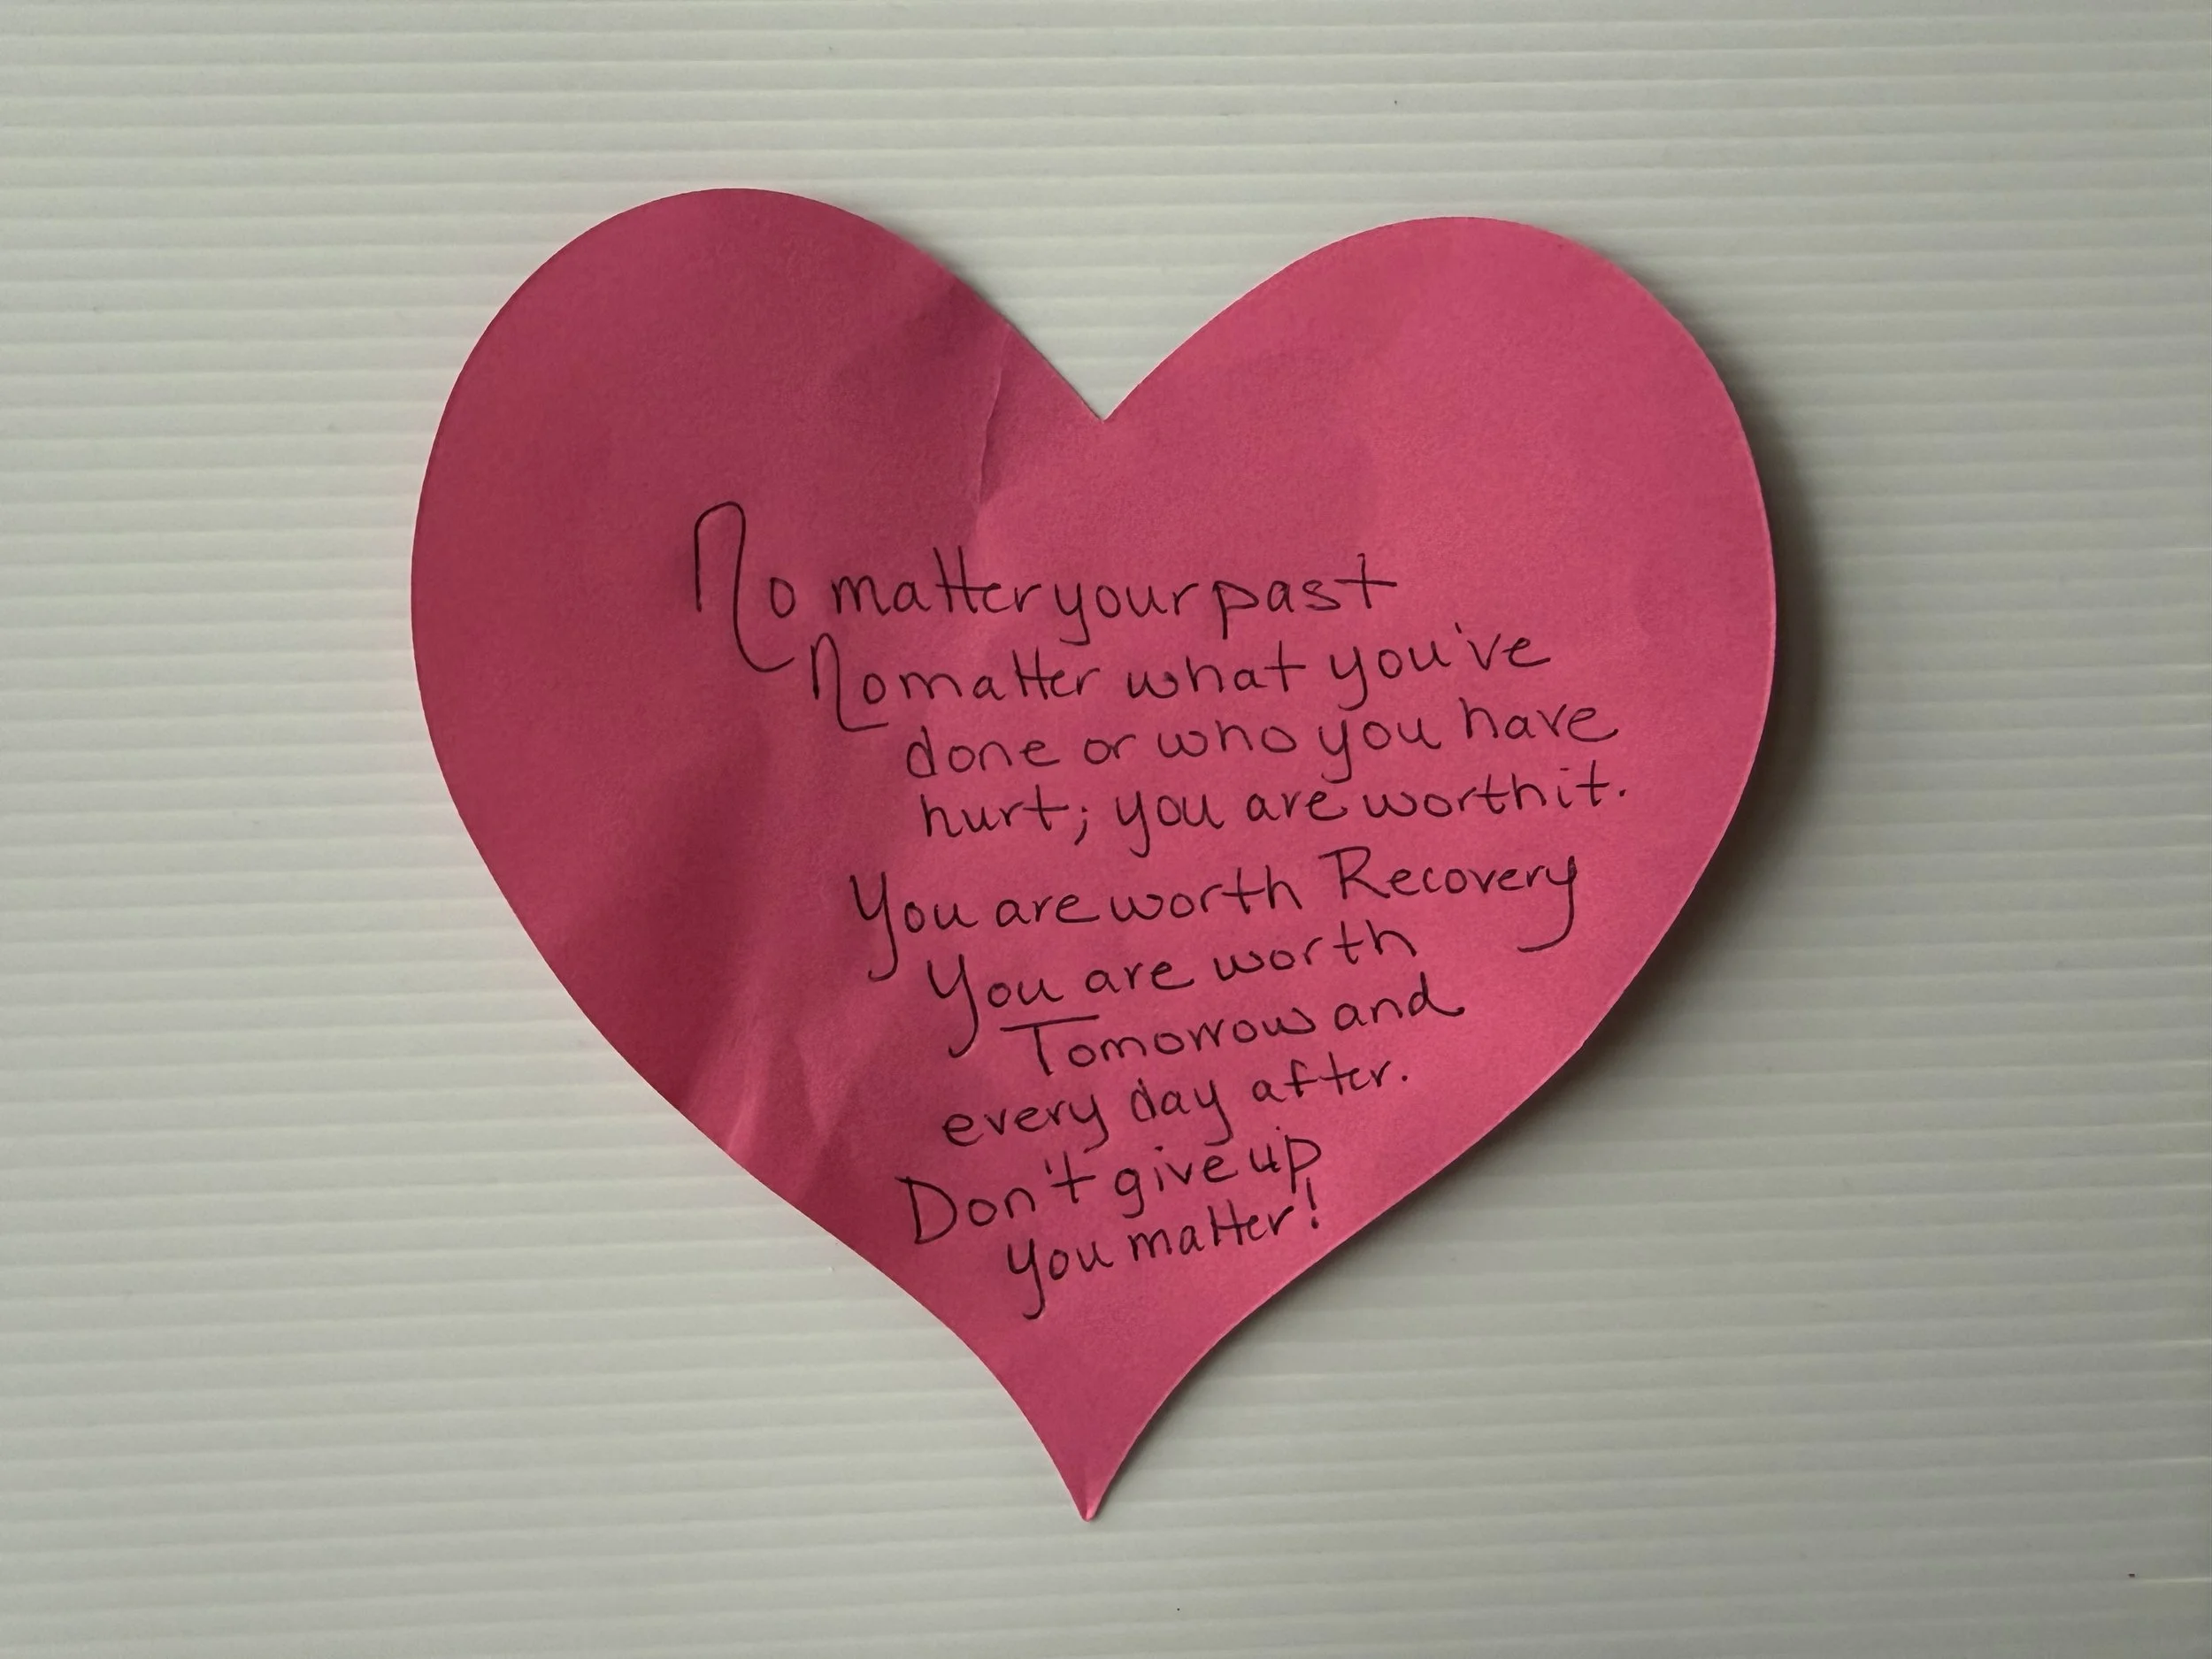 No matter your past
No matter what you've
done or who you have
hurt; you are worth it.
You are worth Recovery
You are worth
Tomorrow and
every day after.
Don't give up
you matter!